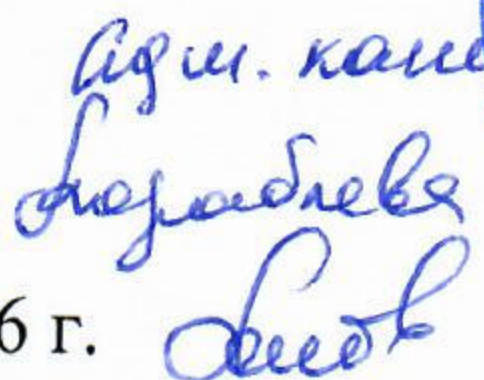 Адм. канц
Кораблева
6 г.